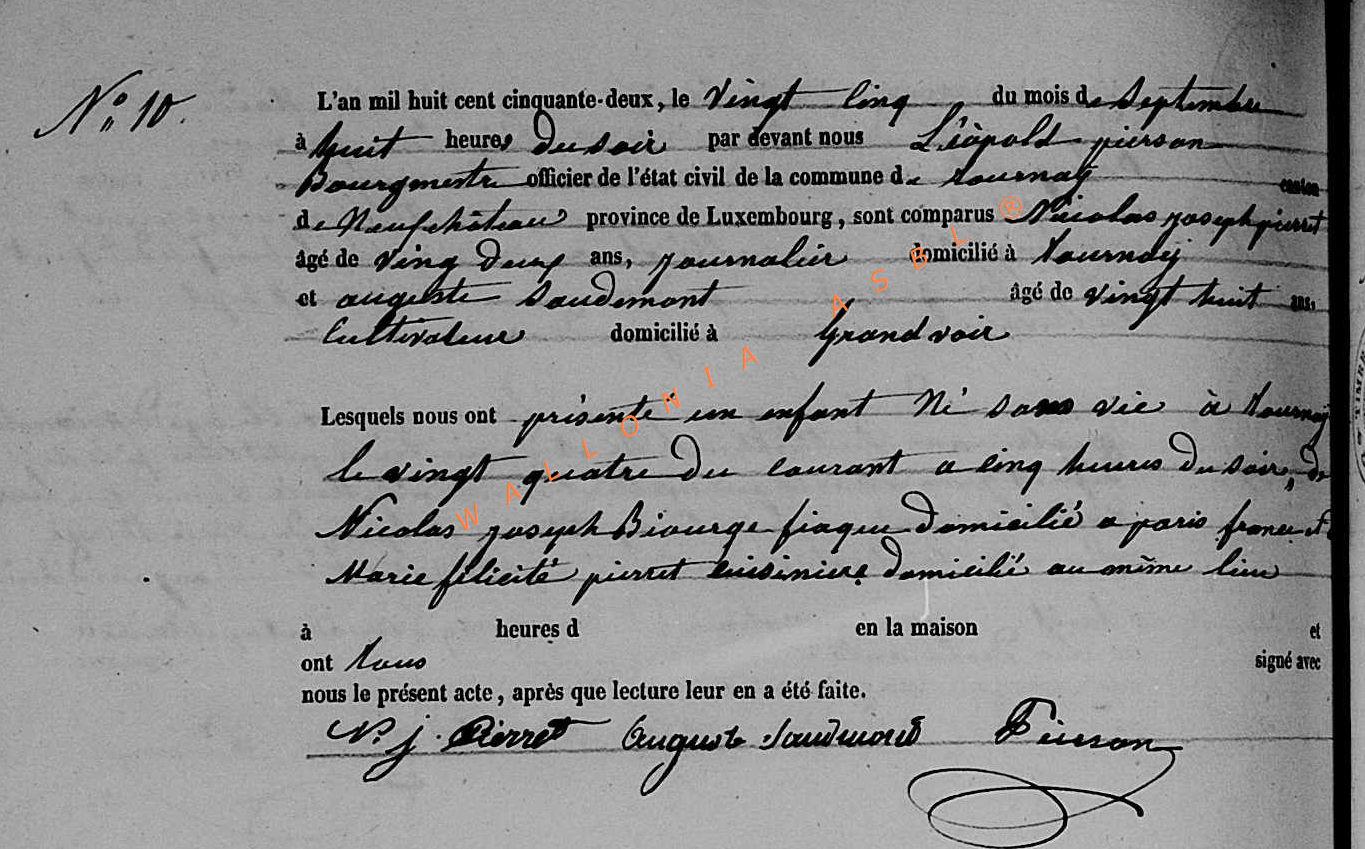 N° 10.
L'an mil huit cent cinquante-deux, le Vingt Cinq du mois de Septembre
à huit heures du soir par devant nous Léopold pierson
Bourgmestre officier de l'état civil de la commune de tournay canton
de Neufchâteau province de Luxembourg, sont comparus Nicolas joseph pierret
âgé de ving deux ans, journalier domicilié à tournay
et auguste Saudemont âgé de vingt huit ans,
Cultivateur domicilié à Grandvoir
Lesquels nous ont présenté un enfant Né sans vie à tournay
le vingt quatre du courant a cinq heures du soir, de
Nicolas joseph Biourge fiaque domicilié a paris france et
Marie félicité pierret cuisinière domicilié au même lieu
à heures d en la maison et
ont tous signé avec
nous le présent acte, après que lecture leur en a été faite.
N. j. Pierret Auguste Saudmont Pierson
WALLONIA ASBL ®